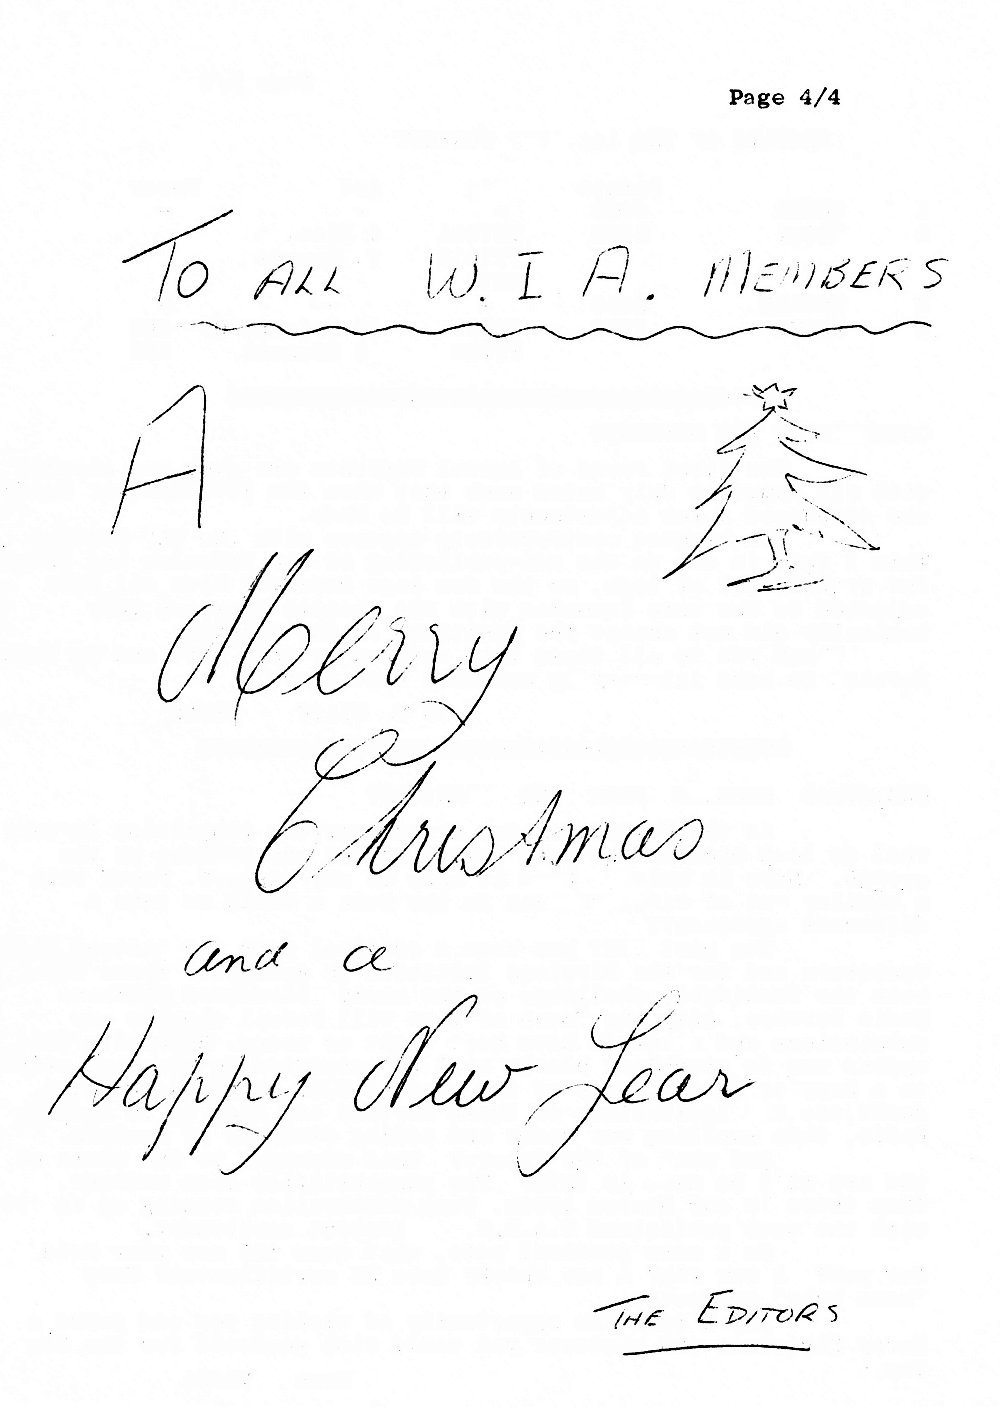 Page 4/4
To ALL W. I A. MEMBERS
A
Merry
Christmas
and a
Happy New Year
THE EDITORS